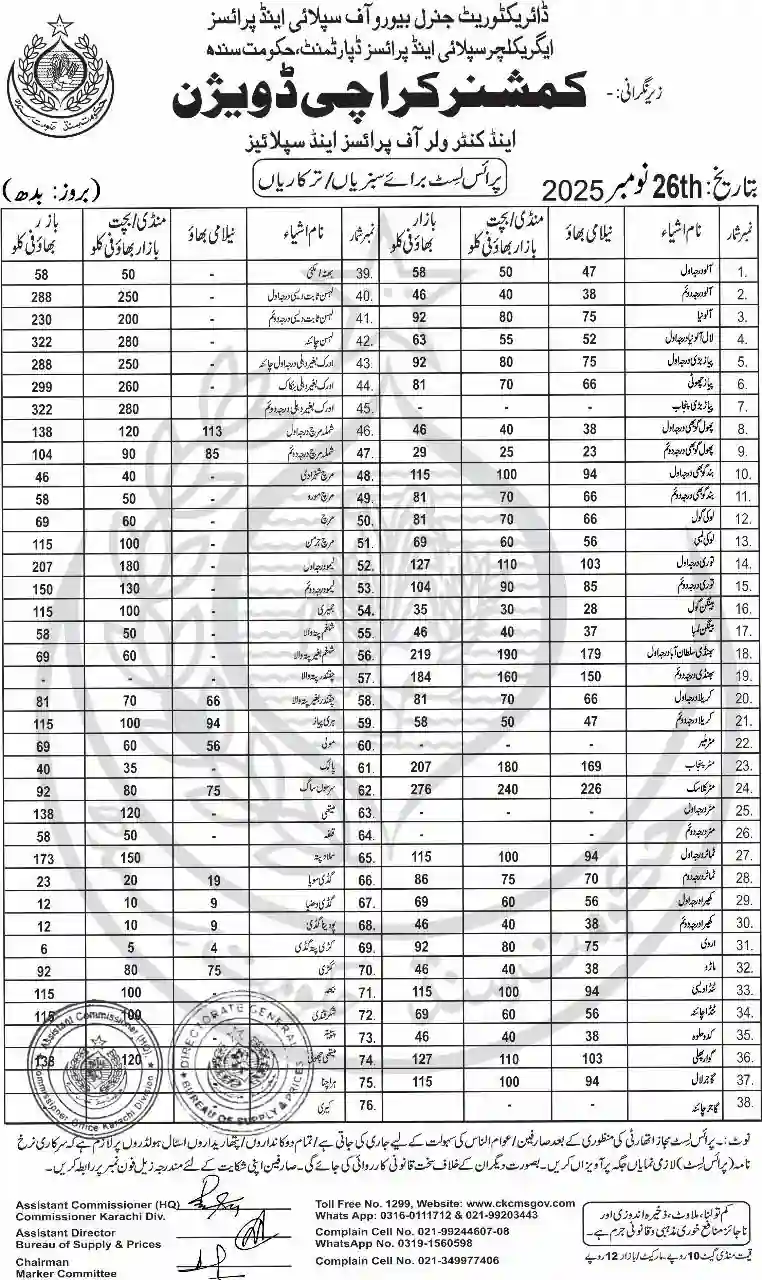 ڈائریکٹوریٹ جنرل بیورو آف سپلائی اینڈ پرائسز
ایگریکلچر سپلائی اینڈ پرائسز ڈپارٹمنٹ، حکومت سندھ
زیر نگرانی: -
کمشنر کراچی ڈویژن
اینڈ کنٹرولر آف پرائسز اینڈ سپلائیز
بتاریخ: 26th نومبر 2025
پرائس لسٹ برائے سبزیاں/ترکاریاں
(بروز: بدھ)
نمبر شمار نام اشیاء نیلامی بھاؤ منڈی/بچت بازار بھاؤ فی کلو بازار بھاؤ فی کلو
1. آلو درجہ اول 47 50 58
2. آلو درجہ دوئم 38 40 46
3. آلو نیا 75 80 92
4. لال آلو نیا درجہ اول 52 55 63
5. پیاز بڑی درجہ اول 75 80 92
6. پیاز چھوٹی 66 70 81
7. پیاز بڑی پنجاب - - -
8. پھول گوبھی درجہ اول 38 40 46
9. پھول گوبھی درجہ دوئم 23 25 29
10. بند گوبھی درجہ اول 94 100 115
11. بند گوبھی درجہ دوئم 66 70 81
12. لوکی گول 66 70 81
13. لوکی لمبی 56 60 69
14. توری درجہ اول 103 110 127
15. توری درجہ دوئم 85 90 104
16. بینگن گول 28 30 35
17. بینگن لمبا 37 40 46
18. بھنڈی سلطان آباد درجہ اول 179 190 219
19. بھنڈی درجہ دوئم 150 160 184
20. کریلا درجہ اول 66 70 81
21. کریلا درجہ دوئم 47 50 58
22. مٹر ملیر - - -
23. مٹر پنجاب 169 180 207
24. مٹر کلاسک 226 240 276
25. مٹر درجہ اول - - -
26. مٹر درجہ دوئم - - -
27. ٹماٹر درجہ اول 94 100 115
28. ٹماٹر درجہ دوم 70 75 86
29. کھیرا درجہ اول 56 60 69
30. کھیرا درجہ دوئم 38 40 46
31. اروی 75 80 92
32. مارو 38 40 46
33. ٹنڈا دیسی 94 100 115
34. ٹنڈا چائنہ 56 60 69
35. کدو حلوہ 38 40 46
36. گوار پھلی 103 110 127
37. گاجر لال 94 100 115
38. گاجر چائنہ - - -
نمبر شمار نام اشیاء نیلامی بھاؤ منڈی/بچت بازار بھاؤ فی کلو بازار بھاؤ فی کلو
39. بھٹہ مکئی - 50 58
40. لہسن ثابت دیسی درجہ اول - 250 288
41. لہسن ثابت دیسی درجہ دوئم - 200 230
42. لہسن چائنہ - 280 322
43. ادرک بغیر دھلی درجہ اول چائنہ - 250 288
44. ادرک بغیر دھلی بنکاک - 260 299
45. ادرک بغیر دھلی درجہ دوئم 280 322
46. شملہ مرچ درجہ اول 113 120 138
47. شملہ مرچ درجہ دوئم 85 90 104
48. مرچ شہزادی - 40 46
49. مرچ مورو - 50 58
50. مرچ - 60 69
51. مرچ جرمن - 100 115
52. لیمو درجہ اول - 180 207
53. لیمو درجہ دوئم - 130 150
54. - 100 115
55. شلغم پتہ والا - 50 58
56. شلغم بغیر پتہ والا - 60 69
57. چقندر پتہ والا - - -
58. چقندر بغیر پتہ والا 66 70 81
59. ہری پیاز 94 100 115
60. مولی 56 60 69
61. پالک - 35 40
62. سرسوں ساگ 75 80 92
63. میتھی - 120 138
64. قلفہ - 50 58
65. سلاد پتہ 150 173
66. گڈی سویا 19 20 23
67. گڈی دھنیا 9 10 12
68. پودینا گڈی 9 10 12
69. کڑی پتہ گڈی 4 5 6
70. ککڑی 75 80 92
71. - 100 115
72. شکرقندی 100 115
73. پپیتہ
74. میتھی چھوٹی 120 138
75. ہرا چنا - -
76. کیری - - -
Assistant Commissioner (HQ),
Commissioner Office Karachi Division
DIRECTORATE GENERAL
BUREAU OF SUPPLY & PRICES
نوٹ:۔ پرائس لسٹ مجاز اتھارٹی کی منظوری کے بعد صارفین/عوام الناس کی سہولت کے لیے جاری کی جاتی ہے/تمام دوکانداروں/پتھاریداروں/اسٹال ہولڈروں پر لازم ہے کہ سرکاری نرخ
نامہ (پرائس لسٹ) لازمی نمایاں جگہ پر آویزاں کریں۔ بصورت دیگران کے خلاف سخت قانونی کارروائی کی جائے گی۔ صارفین اپنی شکایت کے لئے مندرجہ زیل فون نمبر پر رابطہ کریں۔
Assistant Commissioner (HQ)
Commissioner Karachi Div.
Assistant Director
Bureau of Supply & Prices
Chairman
Marker Committee
Toll Free No. 1299, Website: www.ckcmsgov.com
Whats App: 0316-0111712 & 021-99203443
Complain Cell No. 021-99244607-08
WhatsApp No. 0319-1560598
Complain Cell No. 021-349977406
کم تولنا، ملاوٹ، ذخیرہ اندوزی اور
ناجائز منافع خوری مذہبی و قانونی جرم ہے۔
قیمت منڈی گیٹ 10 روپے، مارکیٹ/بازار 12 روپے